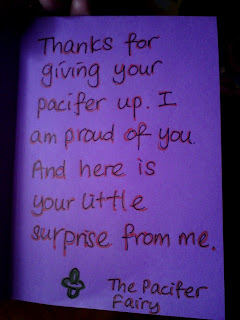 Thanks for
giving your
pacifer up. I
am proud of you.
And here is
your little
surprise from me.
The Pacifer
Fairy